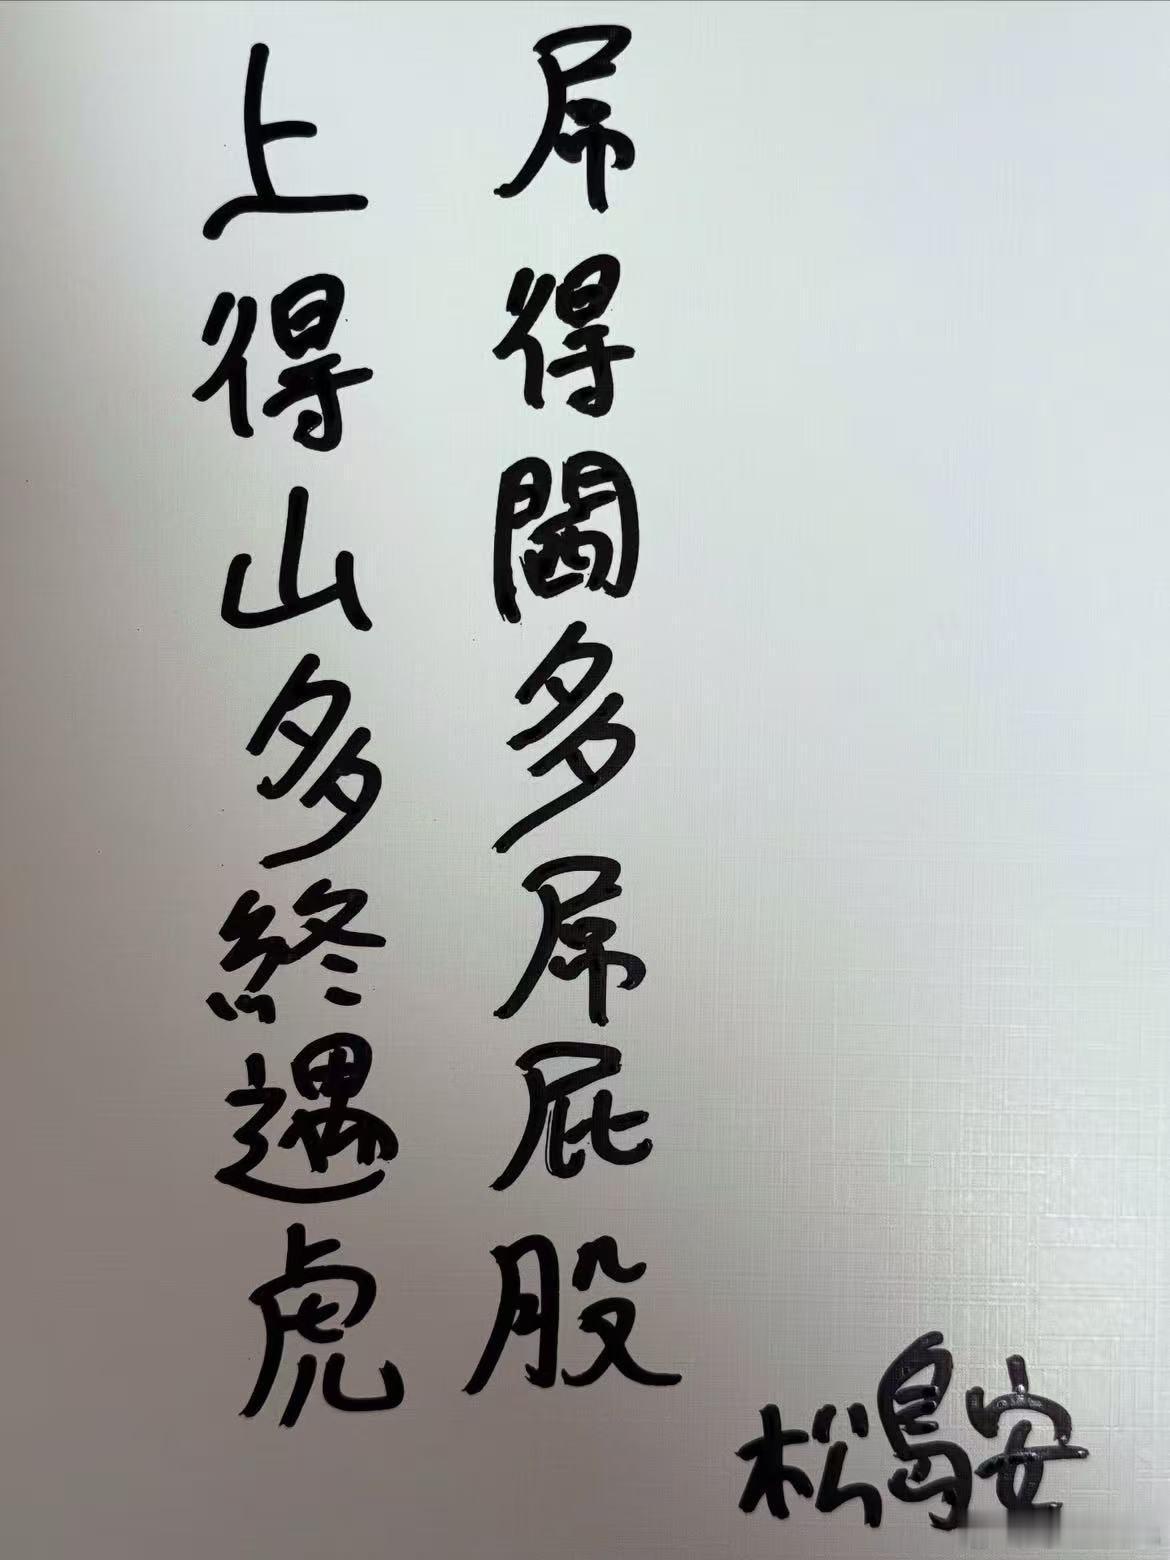 上得山多終遇虎
屌得閪多屌屁股
松島安